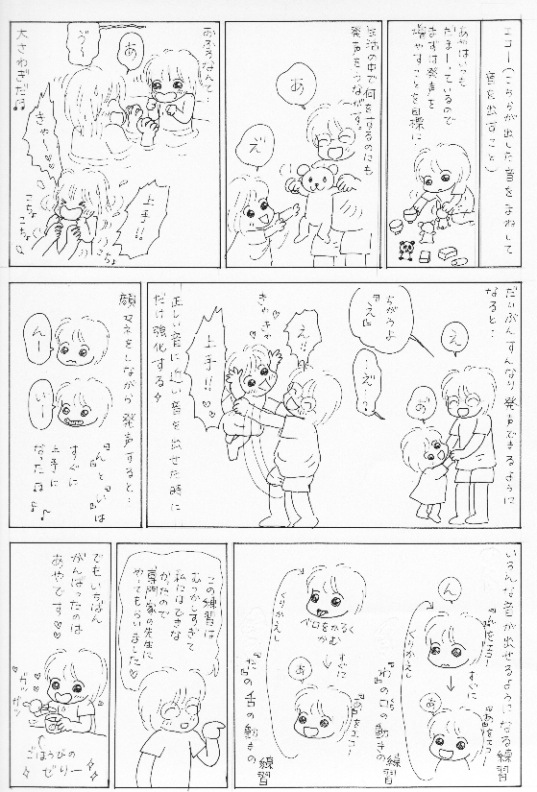 エコー(こちらが出した音をまねして
音を出すこと)
あやはいつも
だまーっているので
まずは発声を
増やすことを目標に
生活の中で何をするのにも
発声をうながす。
あ
え
おふろなんて…
あ
う〜
きゃ〜
上手!!
こちょ
こちょ
こちょ
大さわぎだ
だいぶんすんなり発声できるように
なると…
え
の
ちがうよ
『え』
え?
え!!
きゃきゃ
上手!!
正しい音に近い音を出せた時に
だけ強化する
顔マネをしながら発声すると…
んー
いー
『ん』と『い』は
すぐに
上手に
なったよ
いろんな音が出せるようになる練習
ん
『ん』をエコー
すぐに
『あ』をエコー
あ
くりかえし
『ま』の口の動きの
練習
ベロをかるく
かむ
すぐに
『あ』をエコー
あ
くりかえし
『な』の舌の動きの
練習
この練習は
むつかしすぎて
私にはできな
かったので
専門家の先生に
やってもらいました
でもいちばん
がんばったのは
あやです
ガツ
ガツ
ごほうびの
ぜりー